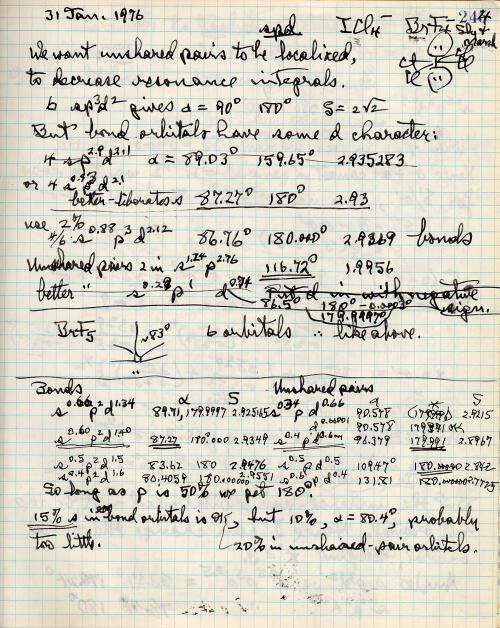 31 Jan. 1976
spd ICl₄⁻ BrF₄⁻ 244
We want unshared pairs to be localized,
to decrease resonance integrals.
6 sp³d² gives α = 90° 180° S = 2√2
But bond orbitals have some d character:
4 sp^2.9 d^2.1 α = 89.03° 159.65° 2.935283
or 4 s^0.93 p^3 d^2.1
better - liberates s 87.27° 180° 2.93
use 2%
4/6 : s^0.88 p^3 d^2.12 86.76° 180.000° 2.9369 bonds
Unshared pairs 2 in s^1.24 p^2.76 116.72° 1.9956
better " s^0.28 p^1 d^0.74 Put d in with negative sign.
86.5° 180°-0.0003°
179.9997°
BrF₅ ~83° 6 orbitals ∴ like above.
Bonds α S Unshared pairs α S
s^0.66 p^2 d^1.34 89.71, 179.9997 2.925165 s^0.34 p d^0.66 90.578 2.9215
90.578
s^0.60 p^2 d^1.40 87.27 180.000 2.9349 s^0.4 p 96.379 179.991 2.8967
s^0.5 p^2 d^1.5 83.62 180 2.9476 s^0.5 p d^0.5 109.47° 2.842
s^0.4 p^2 d^1.6 80.4059 180.00000 2.9551 s^0.6 p d^0.4 131.81 2.7725
So long as p is 50% we get 180°.
15% s in bond orbitals is OK, but 10%, α = 80.4°, probably
too little. 20% in unshared-pair orbitals.